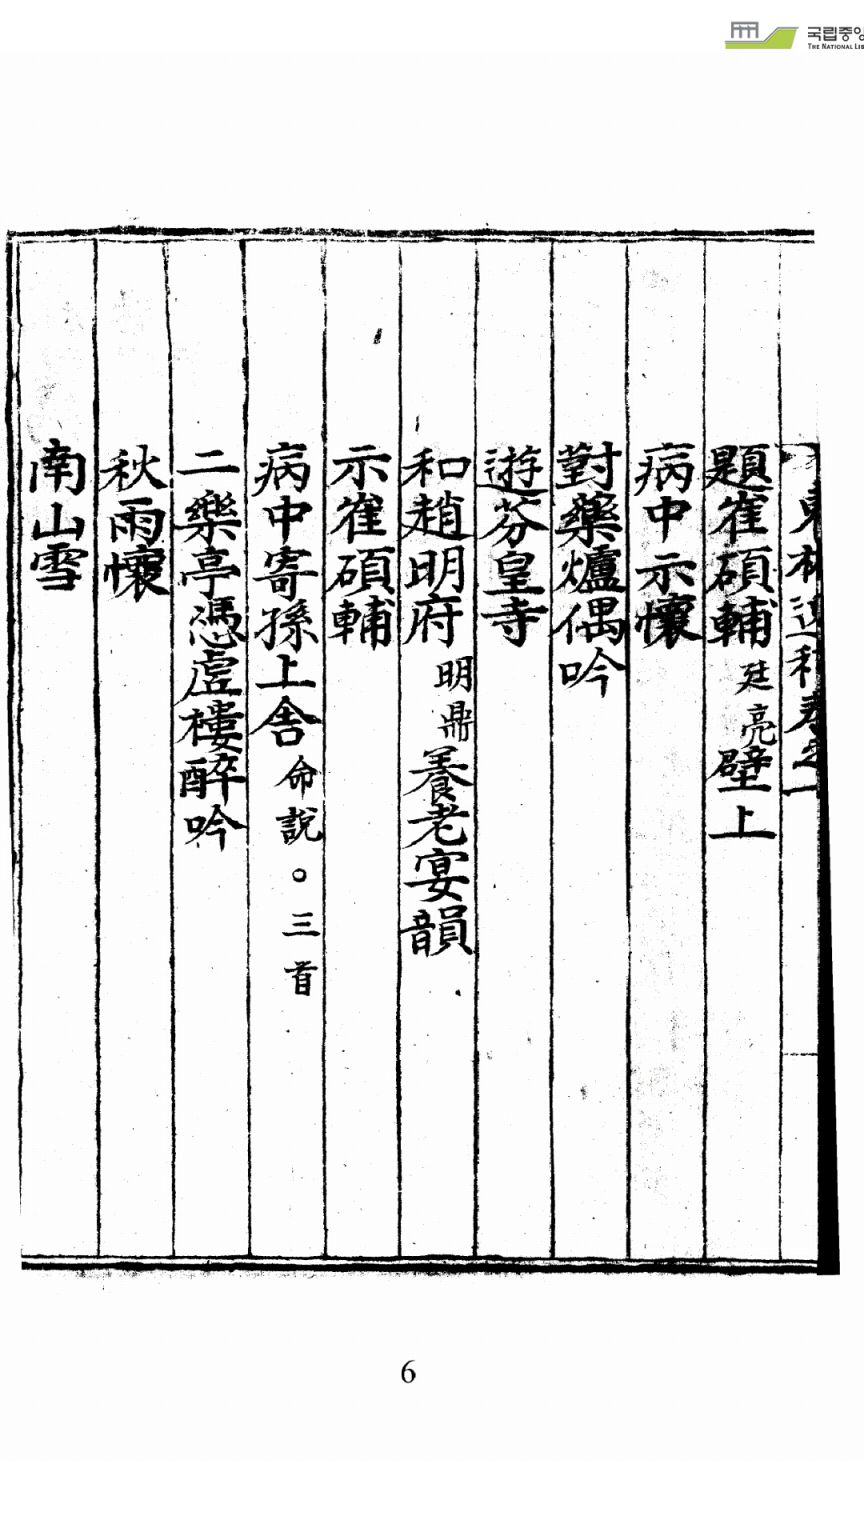 국립중앙
THE NATIONAL LIB
題崔碩輔廷亮壁上
病中示懷
對藥爐偶吟
遊芬皇寺
和趙明府明鼎養老宴韻
示崔碩輔
病中寄孫上舍命說。三首
二樂亭憑虛樓醉吟
秋雨懷
南山雪
6